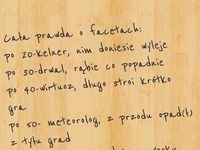 Cała prawda o facetach:
po 20-kelner, nim doniesie wyleje
po 30-drwal, rąbie co popadnie
po 40-wirtuoz, długo stroi krótko
gra
po 50- meteorolog, z przodu opad(t)
z tyłu grad